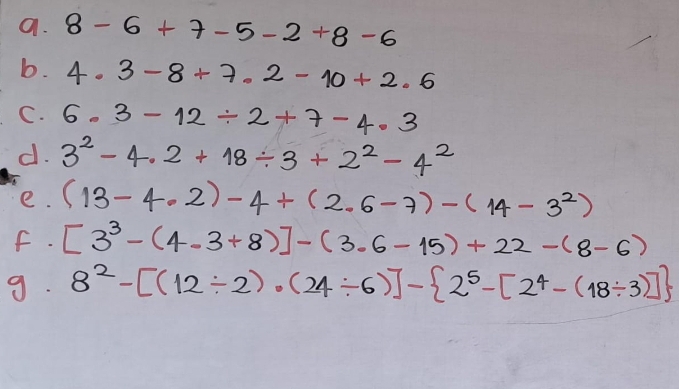 a. 8 - 6 + 7 - 5 - 2 + 8 - 6
b. 4 . 3 - 8 + 7 . 2 - 10 + 2 . 6
c. 6 . 3 - 12 ÷ 2 + 7 - 4 . 3
d. 3² - 4 . 2 + 18 ÷ 3 + 2² - 4²
e. (13 - 4 . 2) - 4 + (2 . 6 - 7) - (14 - 3²)
f. [3³ - (4 . 3 + 8)] - (3 . 6 - 15) + 22 - (8 - 6)
g. 8² - [(12 ÷ 2) . (24 ÷ 6)] - {2⁵ - [2⁴ - (18 ÷ 3)]}